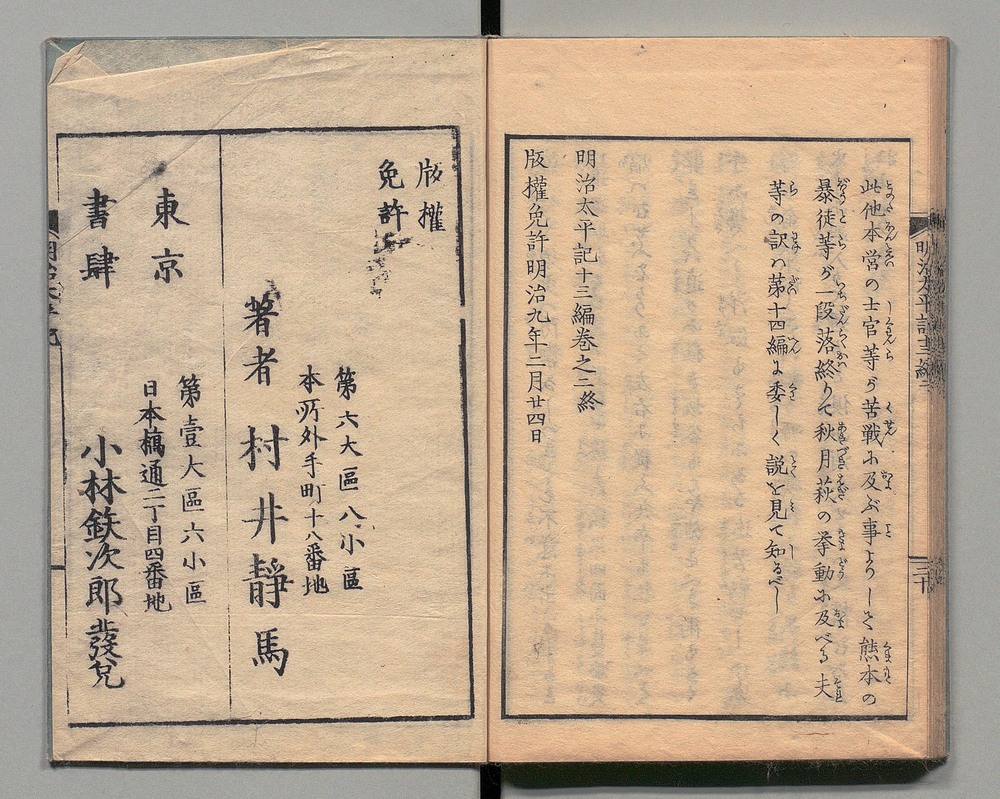 此他本営の士官等が苦戦に及ぶ事よりして熊本の
暴徒等が一段落終りて秋月萩の挙動に及べる夫
等の訳ハ第十四編に委しく説を見て知るべし
明治太平記十三編巻之二終
版權免許明治九年二月廿四日
明治太平記十三編二
三十
版權
免許
第六大區八小區
本所外手町十八番地
著者 村井靜馬
東京
書肆
第壹大區六小區
日本橋通二丁目四番地
小林鉄次郎發兌